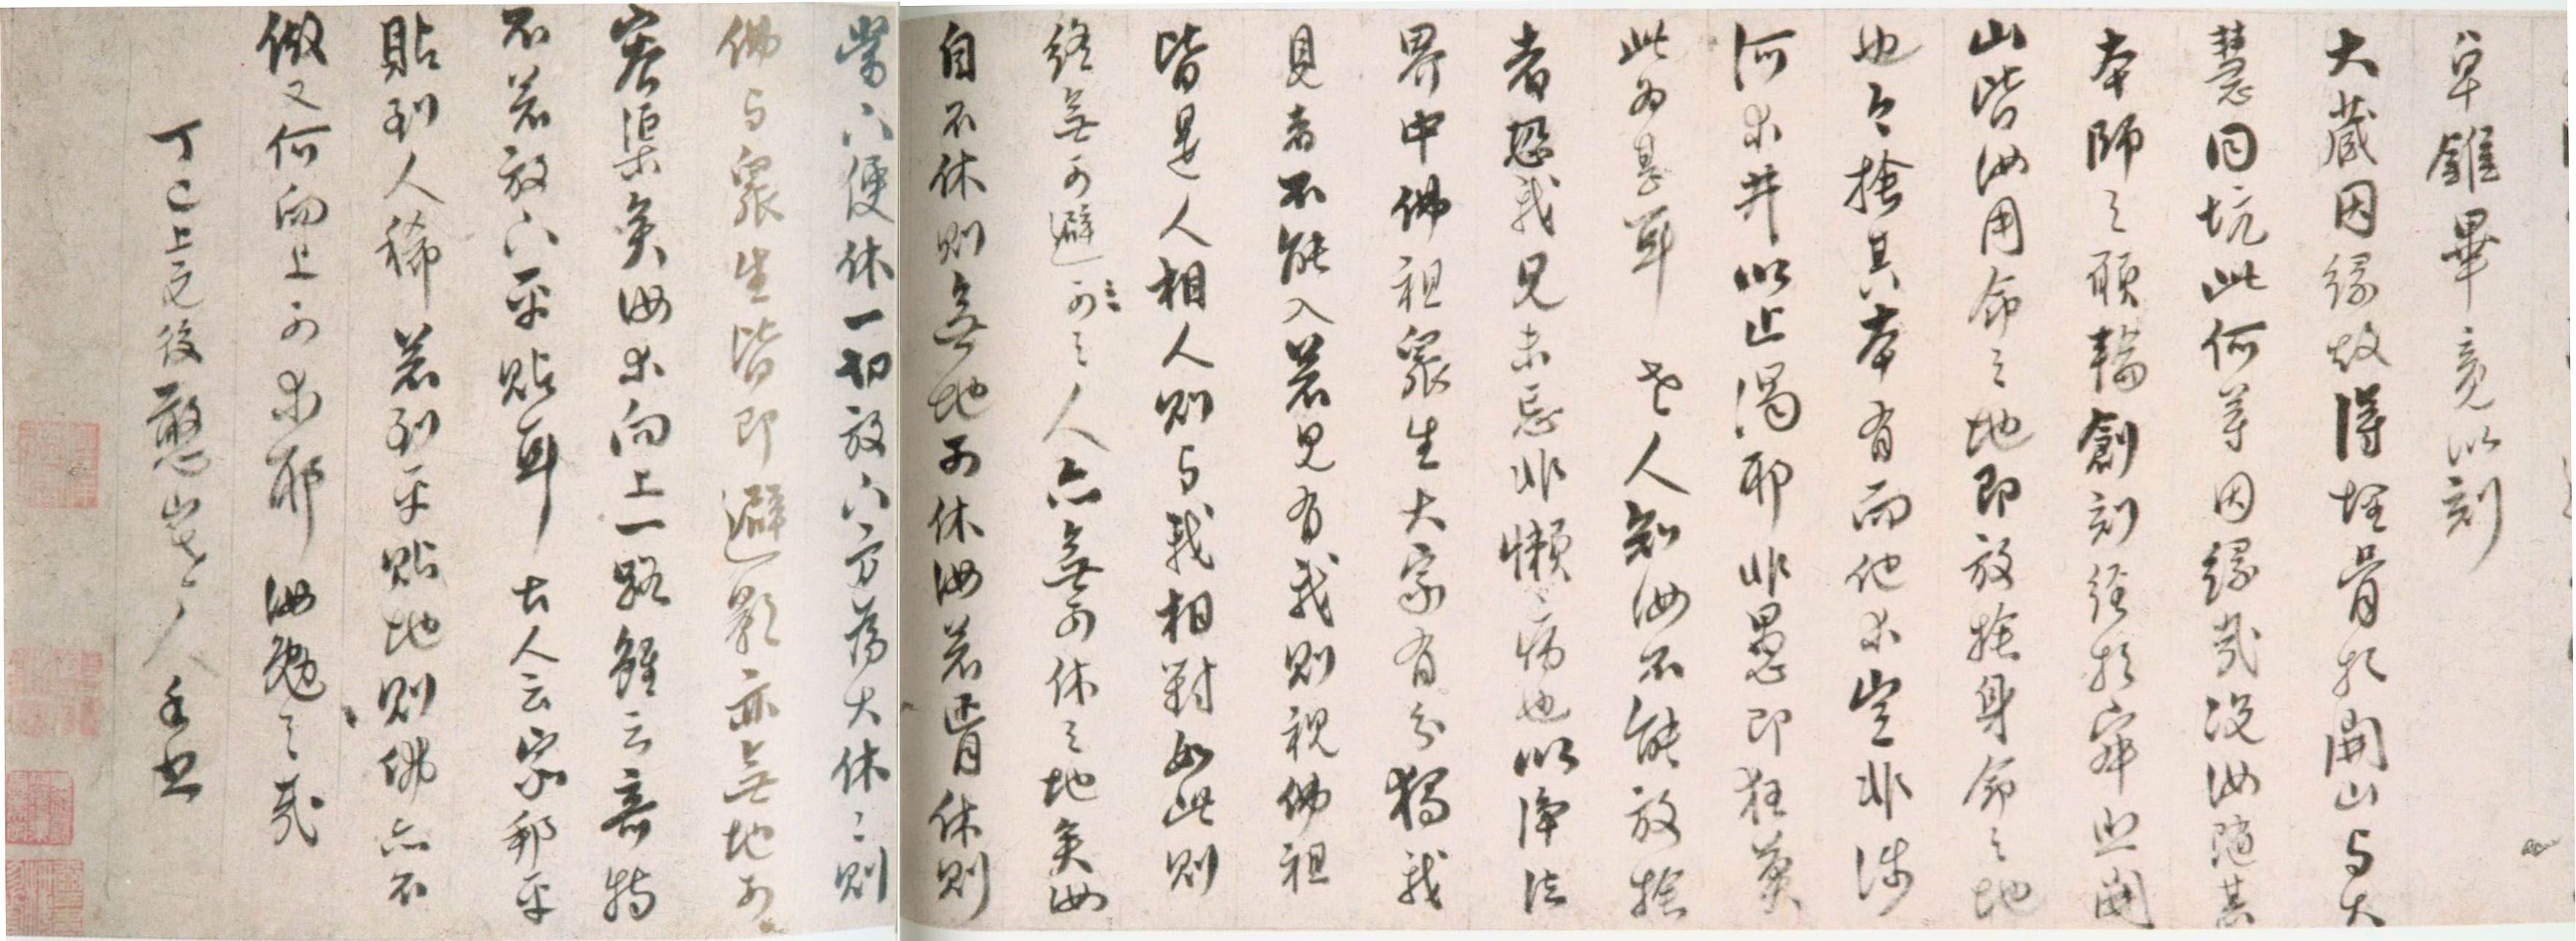 卒雖畢竟以刻
大藏因緣故得埋骨於開山与大
慧同坑此何等因緣哉況汝隨其
本師之願輪創刻經於寂照開
山皆汝用命之地即放捨身命之地
也今捨其本有而他求豈非涉
河求井以止渴耶非愚即狂莫
此為甚耳 老人知汝不能放捨
者恐我見未忘非懶病也以淨法
界中佛祖眾生大家有分獨我
見者不能入若見有我則視佛祖
皆是人相人則与我相對如此則
終無可避可之人亦無可休之地矣汝
自不休則無地可休汝若肯休則
當下便休一切放下方為大休〻則
佛与眾生皆即避影亦無地可
容渠矣汝求向上一路雖云奇特
不若放下平貼耳 古人云家邦平
貼到人稀若到平貼地則佛亦不
做又何向上可求耶 汝勉之哉
丁巳上元後憨山老人手書